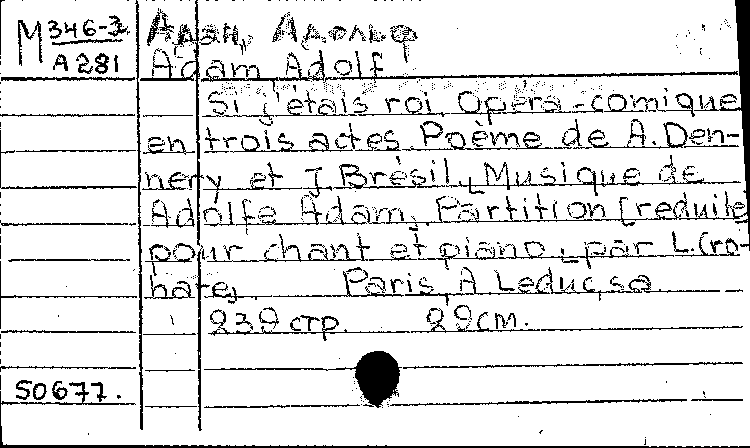 М 346-3
А 281
Адан, Адольф
Adam Adolf
Si j'étais roi. Opéra-comique
en trois actes. Poème de A. Den-
nery et J. Brésil. Musique de
Adolfe Adam, Partition [reduite
pour chant et piano, par L. Cro-
hare,    Paris, A Leduc, sa.
239 стр.    29 см.
50677.